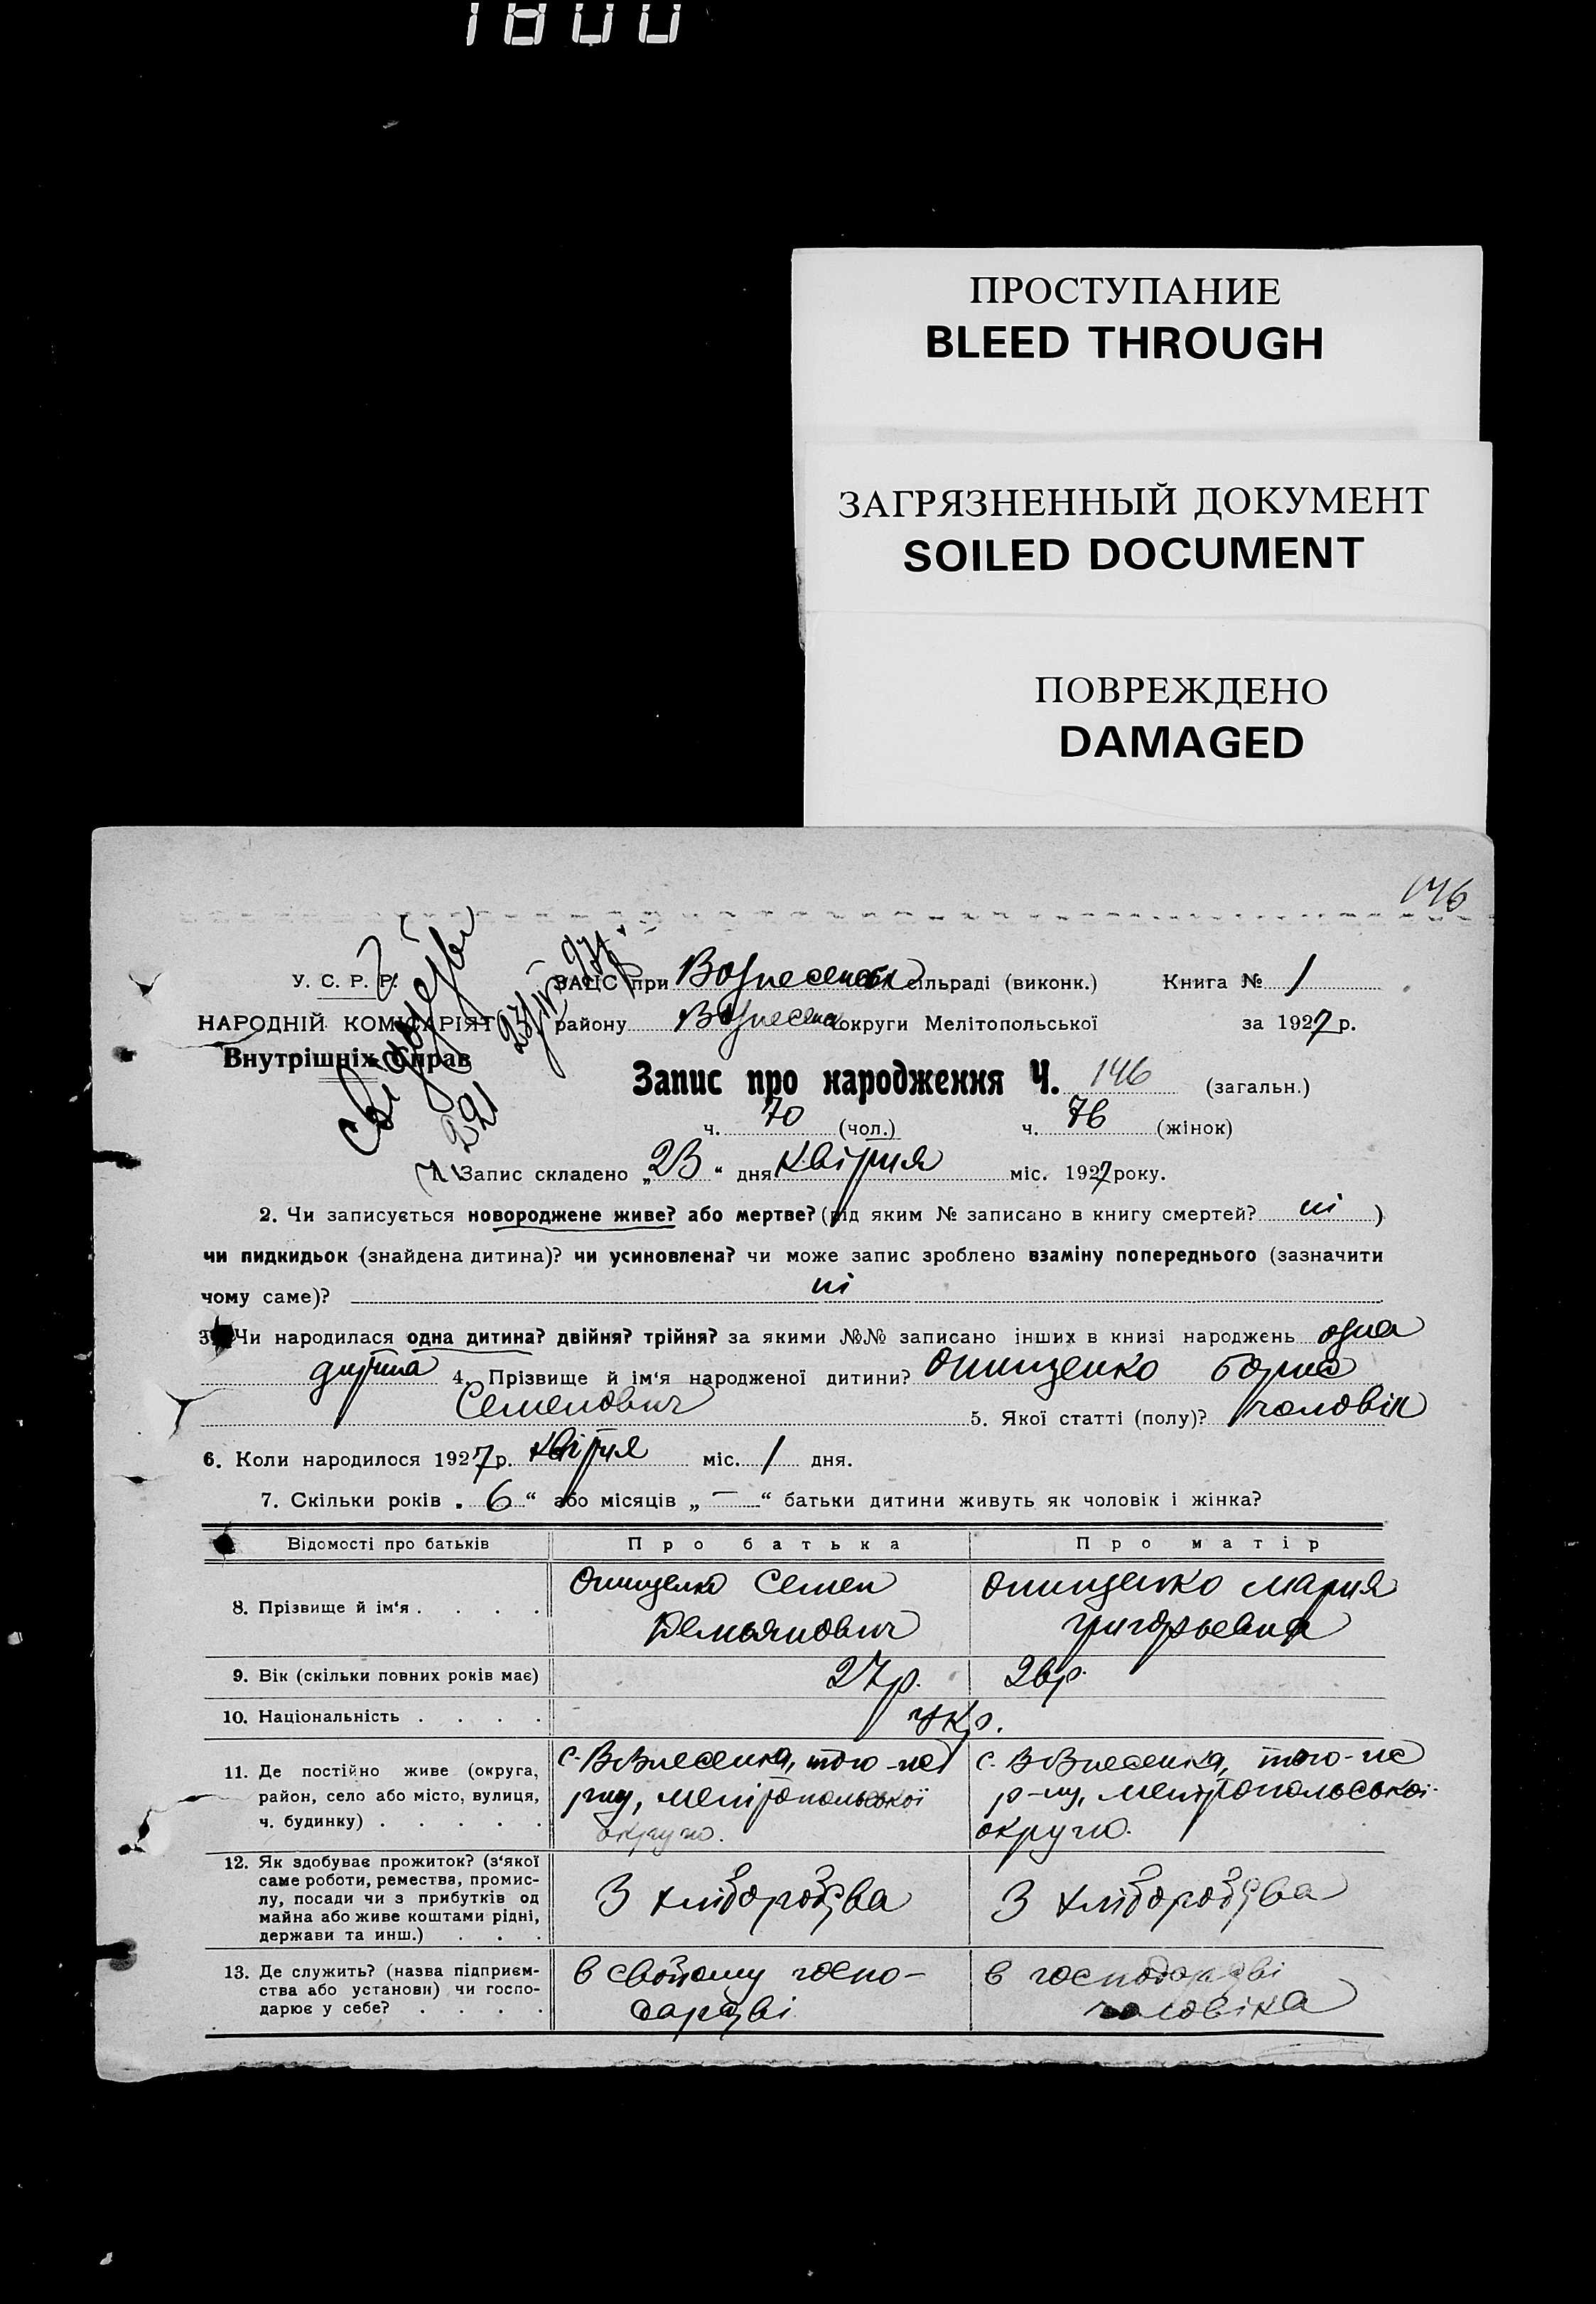 1800
ПРОСТУПАНИЕ
BLEED THROUGH
ЗАГРЯЗНЕННЫЙ ДОКУМЕНТ
SOILED DOCUMENT
ПОВРЕЖДЕНО
DAMAGED
146
У. С. Р. Р.
ЗАЦС при Вознесенськ сільраді (виконк.) Книга № 1
НАРОДНІЙ КОМІСАРІЯТ
району Вознесенс округи Мелітопольської за 1927 р.
Внутрішніх Справ
221 23/IV 27р.
Запис про народження Ч. 146 (загальн.)
ч. 70 (чол.) ч. 76 (жінок)
1. Запис складено „23“ дня квітня міс. 1927 року.
2. Чи записується новороджене живе? або мертве? (під яким № записано в книгу смертей? ні )
чи пидкидьок (знайдена дитина)? чи усиновлена? чи може запис зроблено взаміну попереднього (зазначити
чому саме)? ні
3. Чи народилася одна дитина? двійня? трійня? за якими №№ записано інших в книзі народжень одна
дитина 4. Прізвище й ім‘я народженої дитини? Онищенко Борис
Семенович 5. Якої статті (полу)? чоловік
6. Коли народилося 1927 р. квітня міс. 1 дня.
7. Скільки років „ 6 “ або місяців „ — “ батьки дитини живуть як чоловік і жінка?
Відомості про батьків Про батька Про матір
8. Прізвище й ім‘я . . . . Онищенко Семен Онищенко Мария
Демьянович Григорьевна
9. Вік (скільки повних років має) 27р. 26р.
10. Національність . . . . укр.
11. Де постійно живе (округа, с. Вознесенка, того-же с. Вознесенка, того-же
район, село або місто, вулиця, р-ну, Мелітопольської р-ну, Мелітопольської
ч. будинку) . . . . . округи. округи.
12. Як здобуває прожиток? (з‘якої
саме роботи, ремества, промис-
лу, посади чи з прибутків од З хліборобства З хліборобства
майна або живе коштами рідні,
держави та инш.) . . .
13. Де служить? (назва підприєм- в своїому госпо- в господарстві
ства або установи) чи госпо- дарстві чоловіка
дарює у себе? . . . .